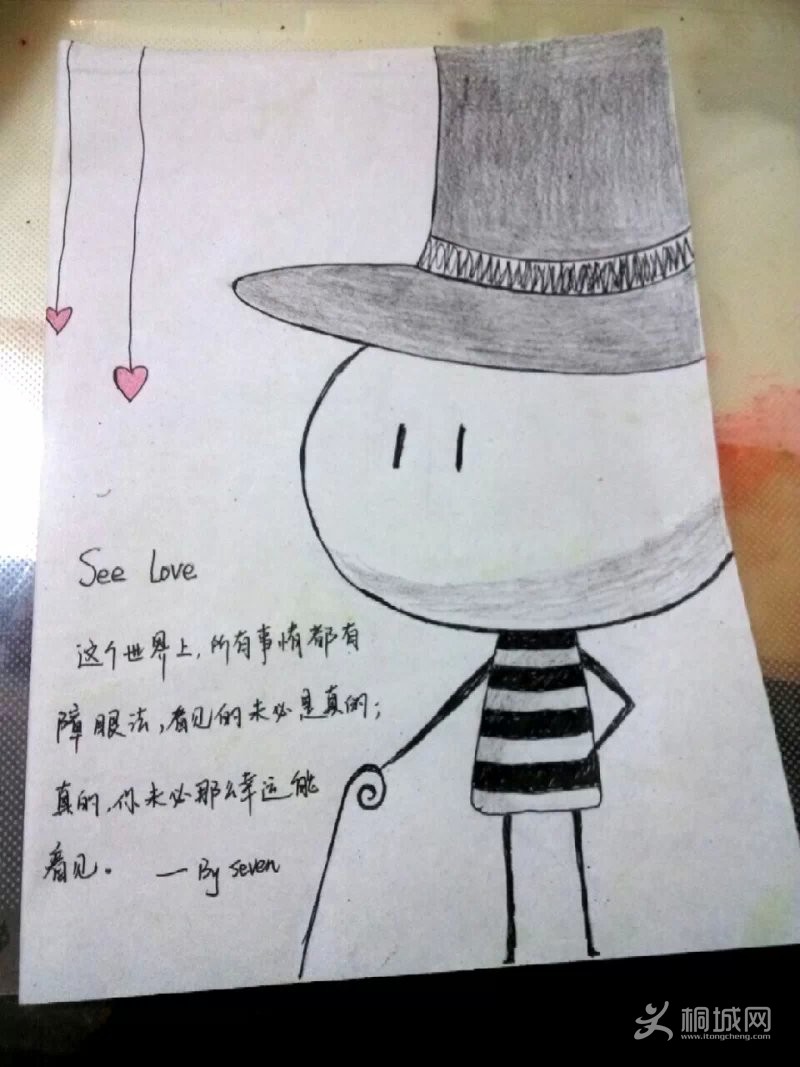 See Love
这个世界上，所有事情都有
障眼法，看见的未必是真的；
真的，你未必那么幸运能
看见。 — By seven
桐城网
www.itongcheng.com